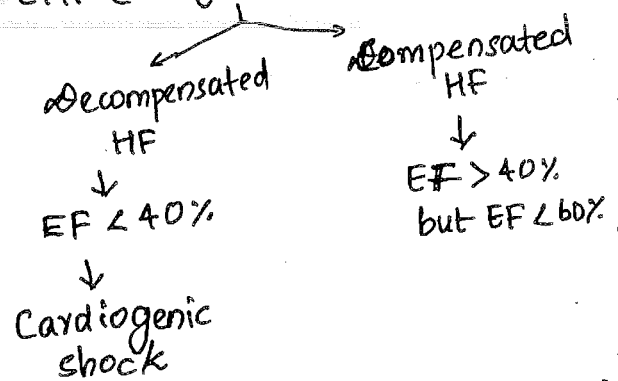 Decompensated
HF
↓
EF < 40%
↓
Cardiogenic
shock
Compensated
HF
↓
EF > 40%
but EF < 60%